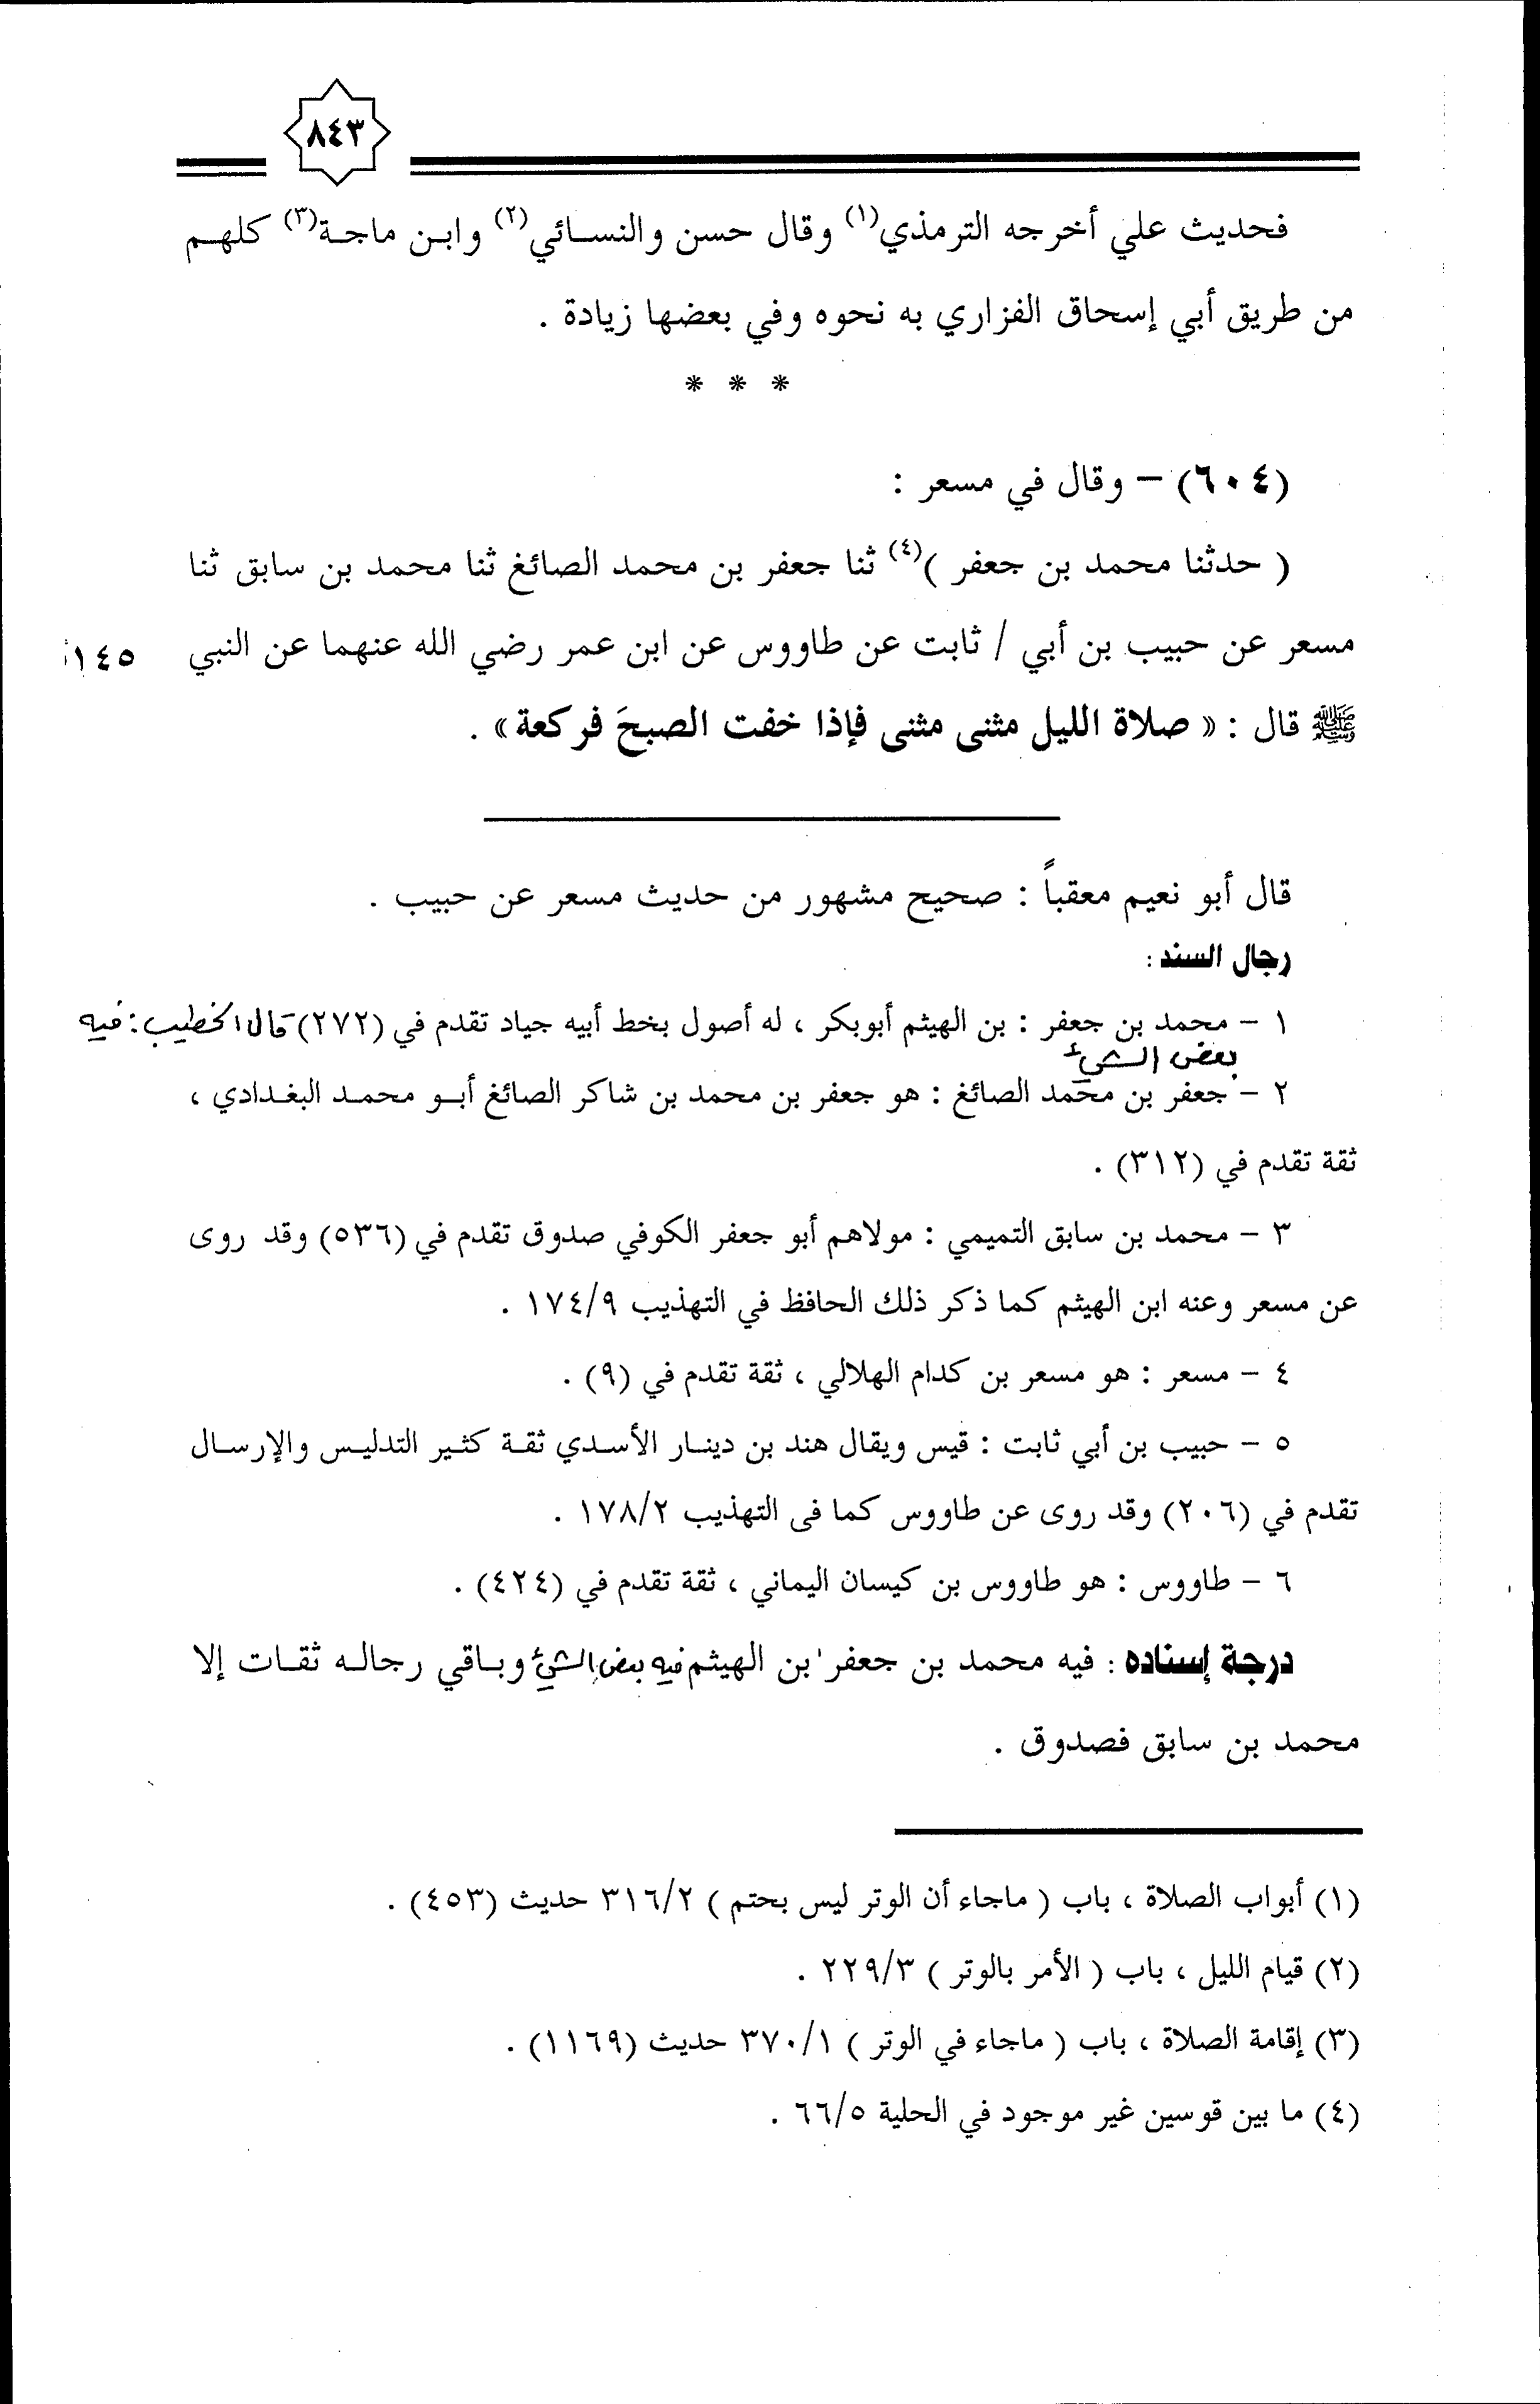 ٨٤٣
فحديث علي أخرجه الترمذي(١) وقال حسن والنسائي(٢) وابن ماجة(٣) كلهم
من طريق أبي إسحاق الفزاري به نحوه وفي بعضها زيادة .
* * *
(٦٠٤) – وقال في مسعر :
( حدثنا محمد بن جعفر )(٤) ثنا جعفر بن محمد الصائغ ثنا محمد بن سابق ثنا
مسعر عن حبيب بن أبي / ثابت عن طاووس عن ابن عمر رضي الله عنهما عن النبي ١٤٥أ
ﷺ قال : « صلاة الليل مثنى مثنى فإذا خفت الصبحَ فركعة» .
قال أبو نعيم معقباً : صحيح مشهور من حديث مسعر عن حبيب .
رجال السند :
١ – محمد بن جعفر : بن الهيثم أبوبكر ، له أصول بخط أبيه جياد تقدم في (٢٧٢) قال الخطيب : فيه
بعض الشيء
٢ – جعفر بن محمد الصائغ : هو جعفر بن محمد بن شاكر الصائغ أبو محمد البغدادي ،
ثقة تقدم في (٣١٢) .
٣ – محمد بن سابق التميمي : مولاهم أبو جعفر الكوفي صدوق تقدم في (٥٣٦) وقد روى
عن مسعر وعنه ابن الهيثم كما ذكر ذلك الحافظ في التهذيب ١٧٤/٩ .
٤ – مسعر : هو مسعر بن كدام الهلالي ، ثقة تقدم في (٩) .
٥ – حبيب بن أبي ثابت : قيس ويقال هند بن دينار الأسدي ثقة كثير التدليس والإرسال
تقدم في (٢٠٦) وقد روى عن طاووس كما فى التهذيب ١٧٨/٢ .
٦ – طاووس : هو طاووس بن كيسان اليماني ، ثقة تقدم في (٤٢٤) .
درجة إسناده : فيه محمد بن جعفر بن الهيثم فيه بعض الشيء وباقي رجاله ثقات إلا
محمد بن سابق فصدوق .
(١) أبواب الصلاة ، باب ( ماجاء أن الوتر ليس بحتم ) ٣١٦/٢ حديث (٤٥٣) .
(٢) قيام الليل ، باب ( الأمر بالوتر ) ٢٢٩/٣ .
(٣) إقامة الصلاة ، باب ( ماجاء في الوتر ) ٣٧٠/١ حديث (١١٦٩) .
(٤) ما بين قوسين غير موجود في الحلية ٦٦/٥ .